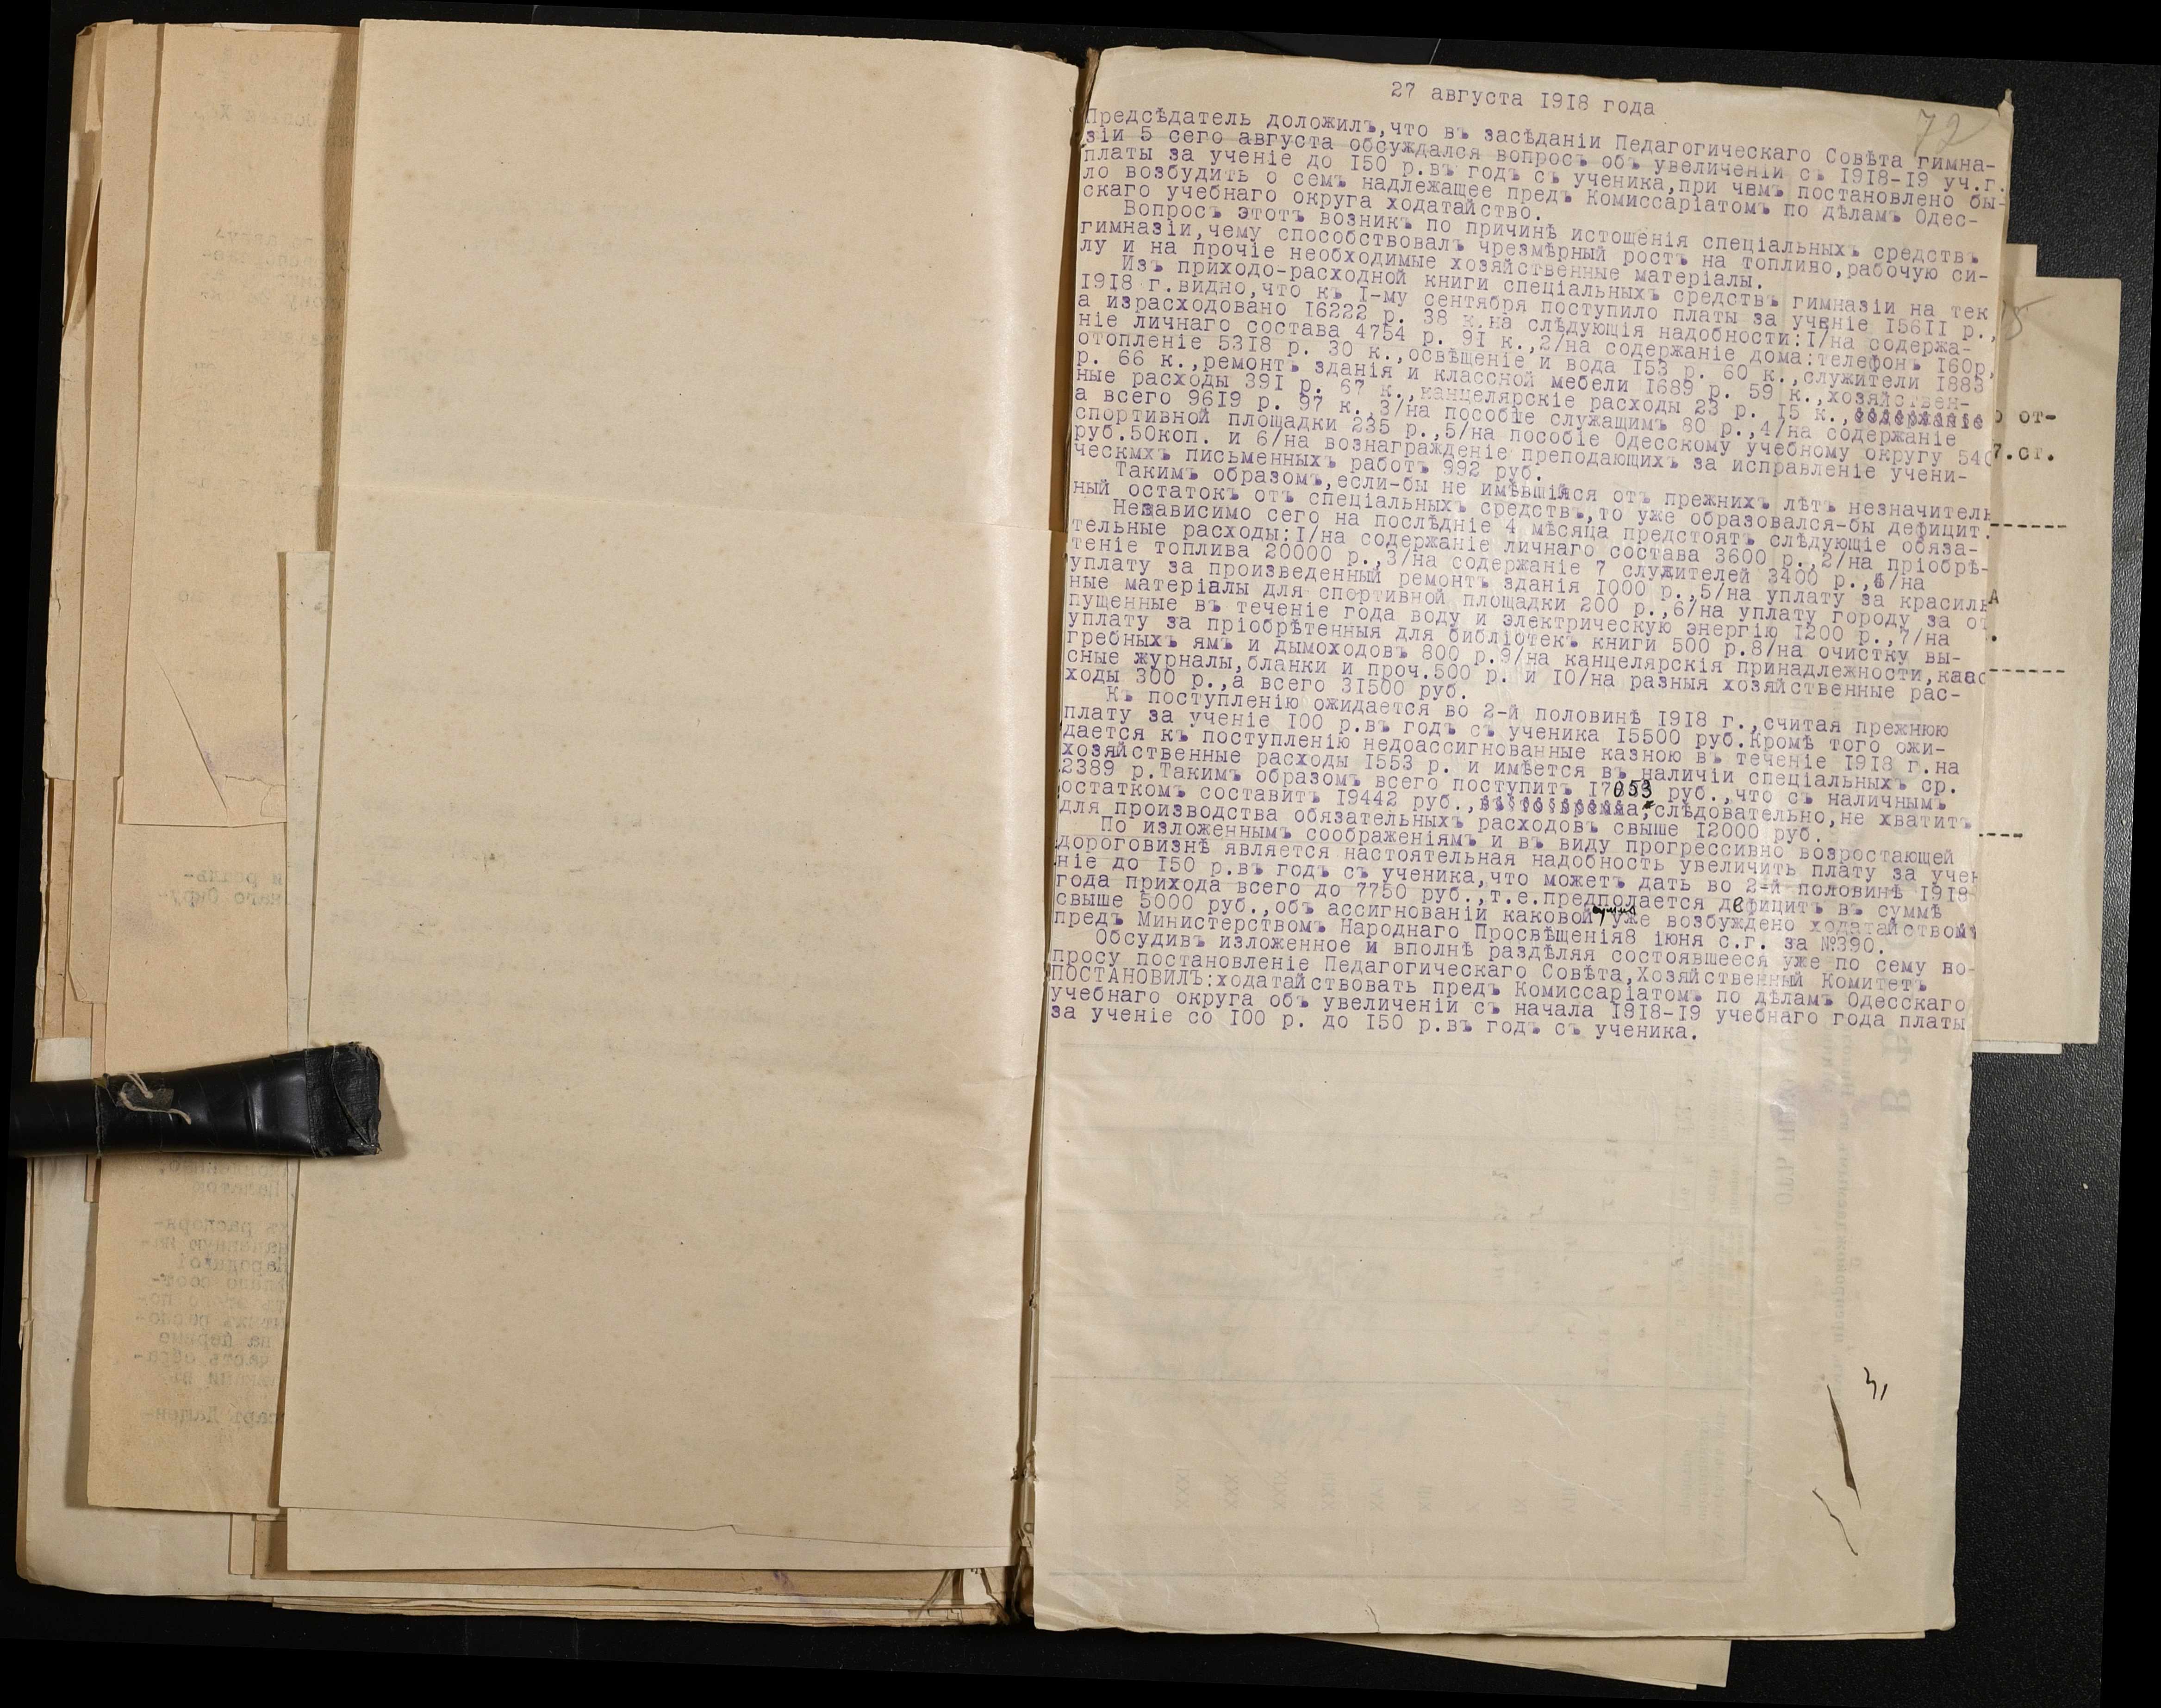 27 августа 1918 года
72
Предсѣдатель доложилъ,что въ засѣданіи Педагогическаго Совѣта гимна-
зіи 5 сего августа обсуждался вопросъ объ увеличеніи съ 1918-19 уч.г.
платы за ученіе до 150 р.въ годъ съ ученика,при чемъ постановлено бы-
ло возбудить о семъ надлежащее предъ Комиссаріатомъ по дѣламъ Одес-
скаго учебнаго округа ходатайство.
Вопросъ этотъ возникъ по причинѣ истощенія спеціальныхъ средствъ
гимназіи,чему способствовалъ чрезмѣрный ростъ на топливо,рабочую си-
лу и на прочіе необходимые хозяйственные матеріалы.
Изъ приходо-расходной книги спеціальныхъ средствъ гимназіи на тек
1918 г.видно,что къ I-му сентября поступило платы за ученіе 15611 р.,
а израсходовано 16222 р. 38 к.на слѣдующія надобности:I/на содержа-
ніе личнаго состава 4754 р. 91 к.,2/на содержаніе дома:телефонъ 160р,
отопленіе 5318 р. 30 к.,освѣщеніе и вода 153 р. 60 к.,служители 1883
р. 66 к.,ремонтъ зданія и классной мебели 1689 р. 59 к.,хозяйствен-
ные расходы 391 р. 67 к.,канцелярскіе расходы 23 р. 15 к.,содержаніе
а всего 9619 р. 97 к.,3/на пособіе служащимъ 80 р.,4/на содержаніе
спортивной площадки 235 р.,5/на пособіе Одесскому учебному округу 540
руб.50коп. и 6/на вознагражденіе преподающихъ за исправленіе учени-
ческмхъ письменныхъ работъ 992 руб.
Такимъ образомъ,если-бы не имѣвшійся отъ прежнихъ лѣтъ незначитель
ный остатокъ отъ спеціальныхъ средствъ,то уже образовался-бы дефицит.
Независимо сего на послѣдніе 4 мѣсяца предстоятъ слѣдующіе обяза-
тельные расходы:I/на содержаніе личнаго состава 3600 р.,2/на пріобрѣ-
теніе топлива 20000 р.,3/на содержаніе 7 служителей 3400 р.,4/на
уплату за произведенный ремонтъ зданія 1000 р.,5/на уплату за красиль
ные матеріалы для спортивной площадки 200 р.,6/на уплату городу за от
пущенные въ теченіе года воду и электрическую энергію 1200 р.,7/на
уплату за пріобрѣтенныя для библіотекъ книги 500 р.8/на очистку вы-
гребныхъ ямъ и дымоходовъ 800 р.9/на канцелярскія принадлежности,каас
сные журналы,бланки и проч.500 р. и 10/на разныя хозяйственные рас-
ходы 300 р.,а всего 31500 руб.
Къ поступленію ожидается во 2-й половинѣ 1918 г.,считая прежнюю
плату за ученіе 100 р.въ годъ съ ученика 15500 руб.Кромѣ того ожи-
дается къ поступленію недоассигнованные казною въ теченіе 1918 г.на
хозяйственные расходы 1553 р. и имѣется въ наличіи спеціальныхъ ср.
2389 р.Такимъ образомъ всего поступитъ 17053 руб.,что съ наличнымъ
остаткомъ составитъ 19442 руб.,слѣдовательно,не хватитъ
для производства обязательныхъ расходовъ свыше 12000 руб.
По изложеннымъ соображеніямъ и въ виду прогрессивно возростающей
дороговизнѣ является настоятельная надобность увеличить плату за учен
ніе до 150 р.въ годъ съ ученика,что можетъ дать во 2-й половинѣ 1918
года прихода всего до 7750 руб.,т.е.предполается дефицитъ въ суммѣ
свыше 5000 руб.,объ ассигнованіи каковой суммы уже возбуждено ходатайством
предъ Министерствомъ Народнаго Просвѣщенія8 іюня с.г. за №390.
Обсудивъ изложенное и вполнѣ раздѣляя состоявшееся уже по сему во-
просу постановленіе Педагогическаго Совѣта,Хозяйственный Комитетъ
ПОСТАНОВИЛЪ:ходатайствовать предъ Комиссаріатомъ по дѣламъ Одесскаго
учебнаго округа объ увеличеніи съ начала 1918-19 учебнаго года платы
за ученіе со 100 р. до 150 р.въ годъ съ ученика.